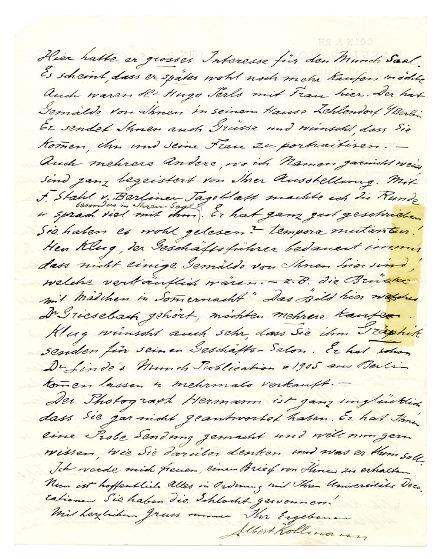 Hier hatte er grosses Interesse für den Munch Saal.
Es scheint, dass er später wohl noch mehr kaufen möchte
Auch waren Hr Hugo Perls mit Frau hier. Der hat
Gemälde von Ihnen in seinem Hause Zehlendorf b/Berlin
Er sendet Ihnen auch Grüsse und wünscht, dass Sie
komen, ihn und seine Frau zu portraitiren. —
Auch mehrere Andere, wo ich Namen garnicht weiss
sind ganz begeistert von Ihrer Ausstellung. Mit
F. Stahl v. Berliner Tageblatt machte ich die Runde
besonders in Ihrem Saal
u sprach viel mit ihm. Er hat ganz gut geschrieben
Sie haben es wohl gelesen? tempora mutantur!
Herr Klug, der Geschäftsführer bedauert immer
dass nicht einige Gemälde von Ihnen hier sind,
welche verkäuflich wären. — z.B. die Brücke
mit Mädchen in Somernacht". Das Bild hier welches
Dr Griesebach gehört, möchten mehrere kaufen
Klug wünscht auch sehr, dass Sie ihm Graphik
senden für seinen Geschäfts-Salon. Er hat schon
Dr Linde's Munch Publication v 1905 aus Berlin
komen lassen u mehrmals verkauft. —
Der Photograph Hermann ist ganz unglücklich
dass Sie gar nicht geantwortet haben. Er hat Ihnen
eine Probe Sendung gemacht und will nun gern
wissen, wie Sie darüber denken und was er thun soll.
Ich werde mich freuen, einen Brief von Ihnen zu erhalten
Nun ist hoffentlich Alles in Ordnung mit Ihren Universitäts Deco-
rationen Sie haben die Schlacht gewonnen!
Mit herzlichem Gruss immer Ihr Ergebener
Albert Kollmann